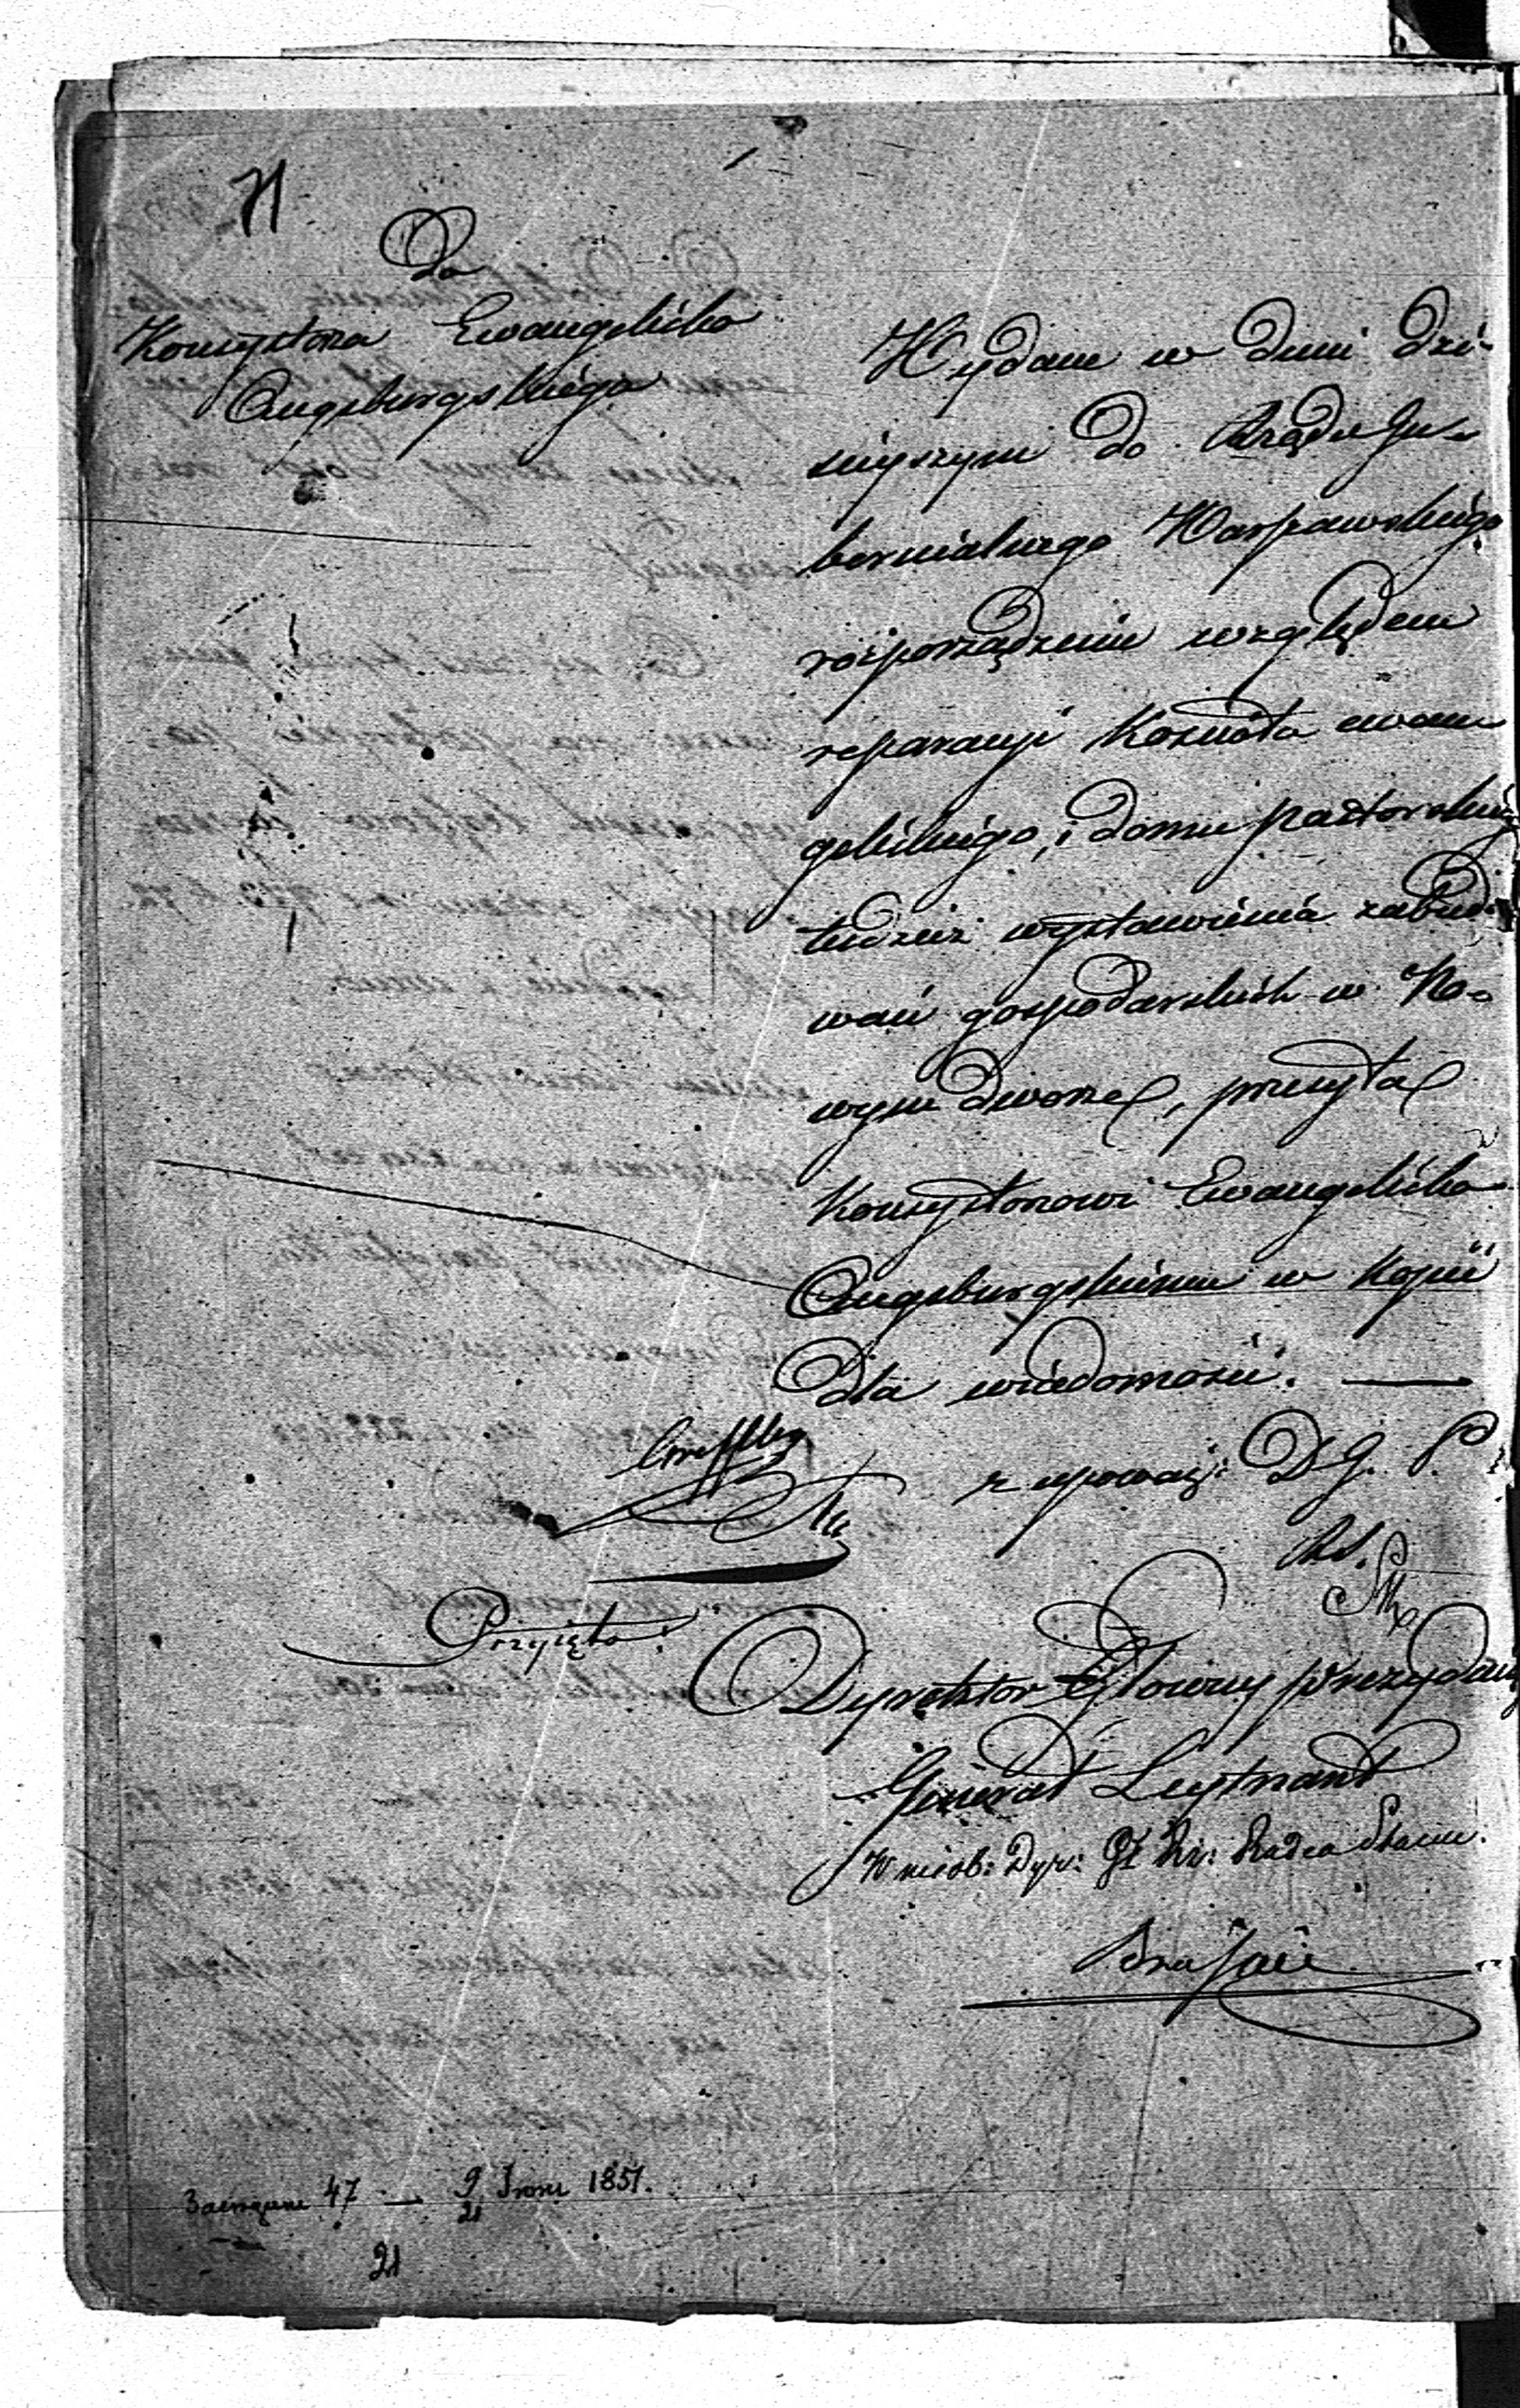 Do
Konsystorza Ewangelicko
Augsburgskiego
Wydane w dniu dzi-
siejszym do Rządu Gu-
bernialnego Warszawskiego
rozporządzenie względem
reparacyi Kościoła ewan
gelickiego, i domu pastorskieg
tudzież wystawienia zabudo
wań gospodarskich w No-
wym Dworze, przesyła
Konsystorzowi Ewangelicko
Augsburgskiemu w Kopii
dla wiadomości. —
z upoważ: D. G. P.
Przyjęto:
Dyrektor Główny Prezydując
Generał Leytnant
W nieob: Dyr: Gł. Radca Stanu.
47 — 9/21 1851.
21